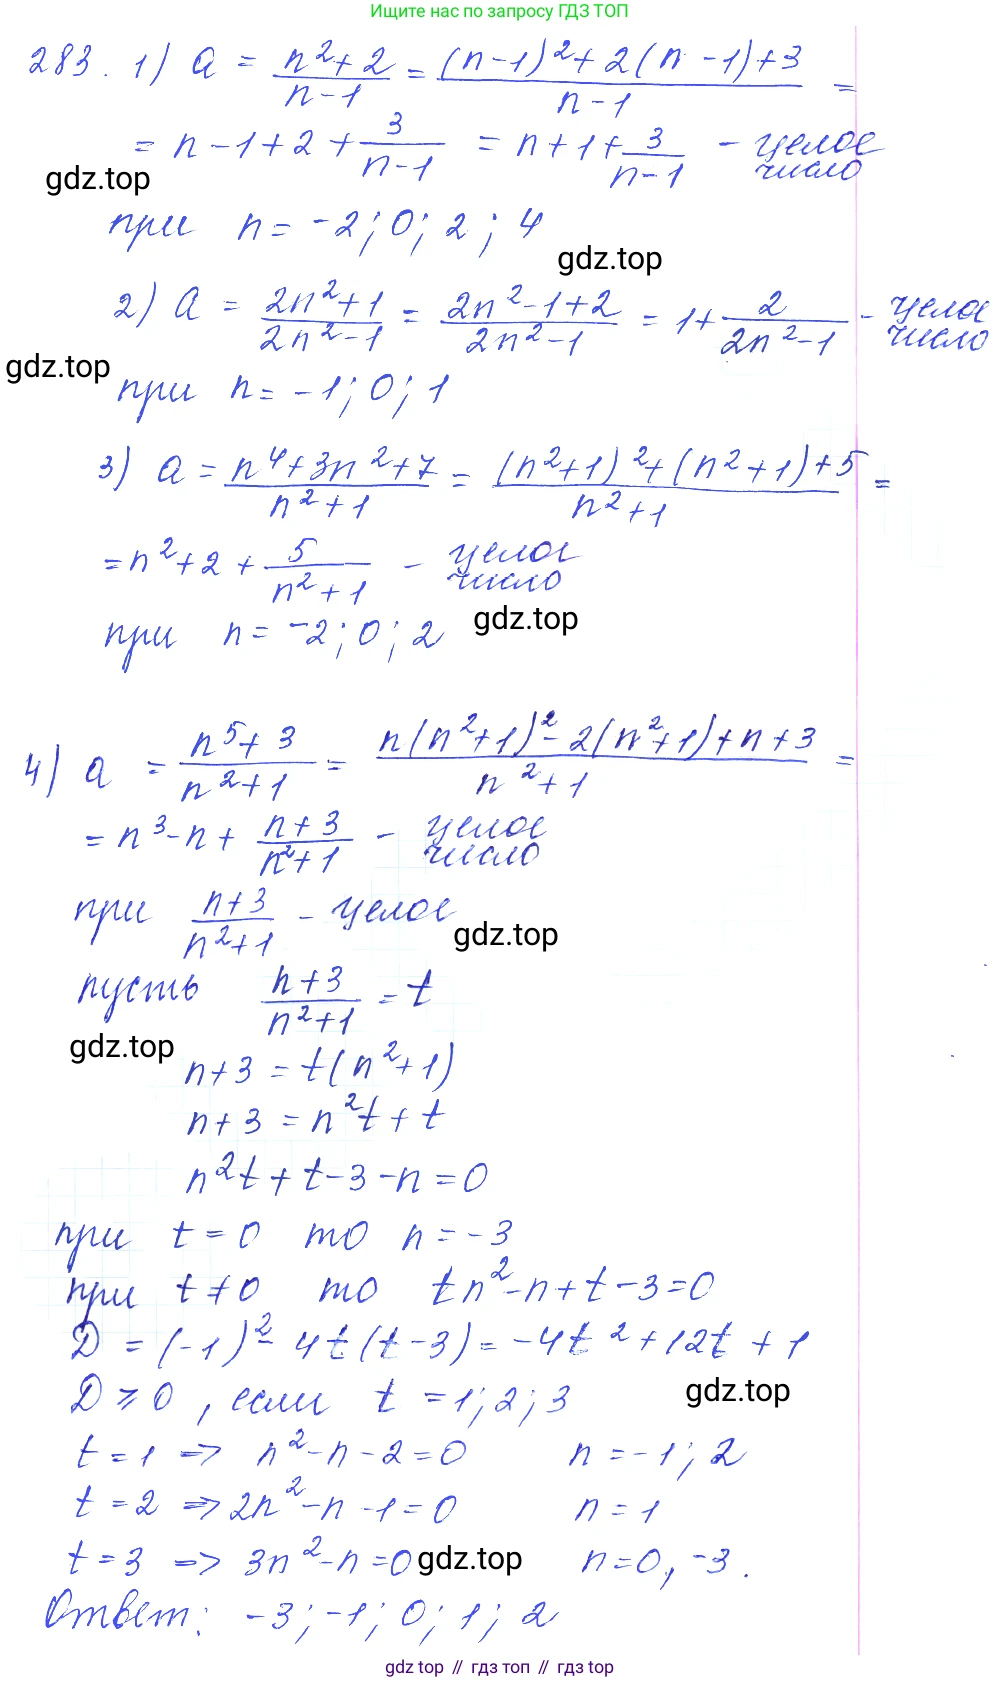 Ищите нас по запросу ГДЗ ТОП
283. 1) a = (n²+2)/(n-1) = ((n-1)²+2(n-1)+3)/(n-1) =
= n-1+2+3/(n-1) = n+1+3/(n-1) - целое число
gdz.top
при n = -2; 0; 2; 4
gdz.top
2) a = (2n²+1)/(2n²-1) = (2n²-1+2)/(2n²-1) = 1+2/(2n²-1) - целое число
gdz.top
при n = -1; 0; 1
3) a = (n⁴+3n²+7)/(n²+1) = ((n²+1)²+(n²+1)+5)/(n²+1) =
= n²+2+5/(n²+1) - целое число
gdz.top
при n = -2; 0; 2
4) a = (n⁵+3)/(n²+1) = (n(n²+1)²-2(n²+1)+n+3)/(n²+1) =
= n³-n+(n+3)/(n²+1) - целое число
при (n+3)/(n²+1) - целое
gdz.top
пусть (n+3)/(n²+1) = t
gdz.top
n+3 = t(n²+1)
n+3 = n²t+t
n²t+t-3-n=0
при t=0 то n=-3
при t≠0 то tn²-n+t-3=0
D = (-1)²-4t(t-3) = -4t²+12t+1
gdz.top
D ≥ 0, если t = 1; 2; 3
t=1 => n²-n-2=0 n=-1; 2
t=2 => 2n²-n-1=0 n=1
t=3 => 3n²-n=0 gdz.top n=0, -3.
Ответ: -3; -1; 0; 1; 2
gdz top // гдз топ // gdz top